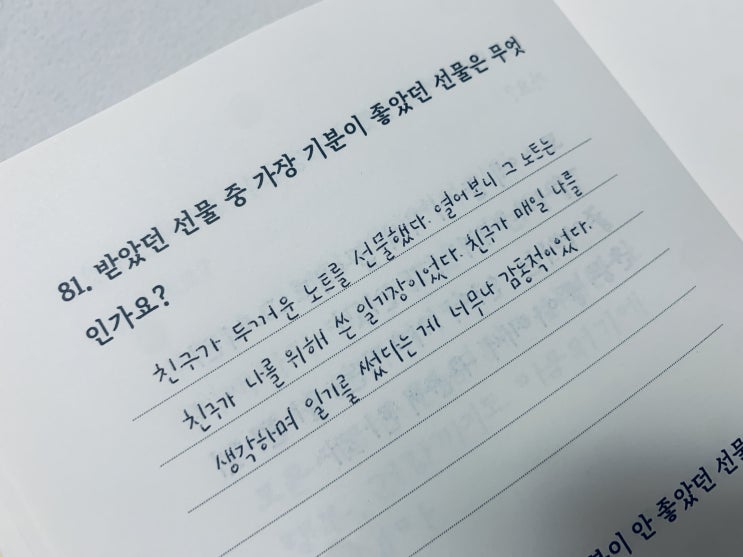 81. 받았던 선물 중 가장 기분이 좋았던 선물은 무엇
인가요?
친구가 두꺼운 노트를 선물했다. 열어보니 그 노트는
친구가 나를 위해 쓴 일기장이었다. 친구가 매일 나를
생각하며 일기를 썼다는게 너무나 감동적이었다.
안 좋았던 선물